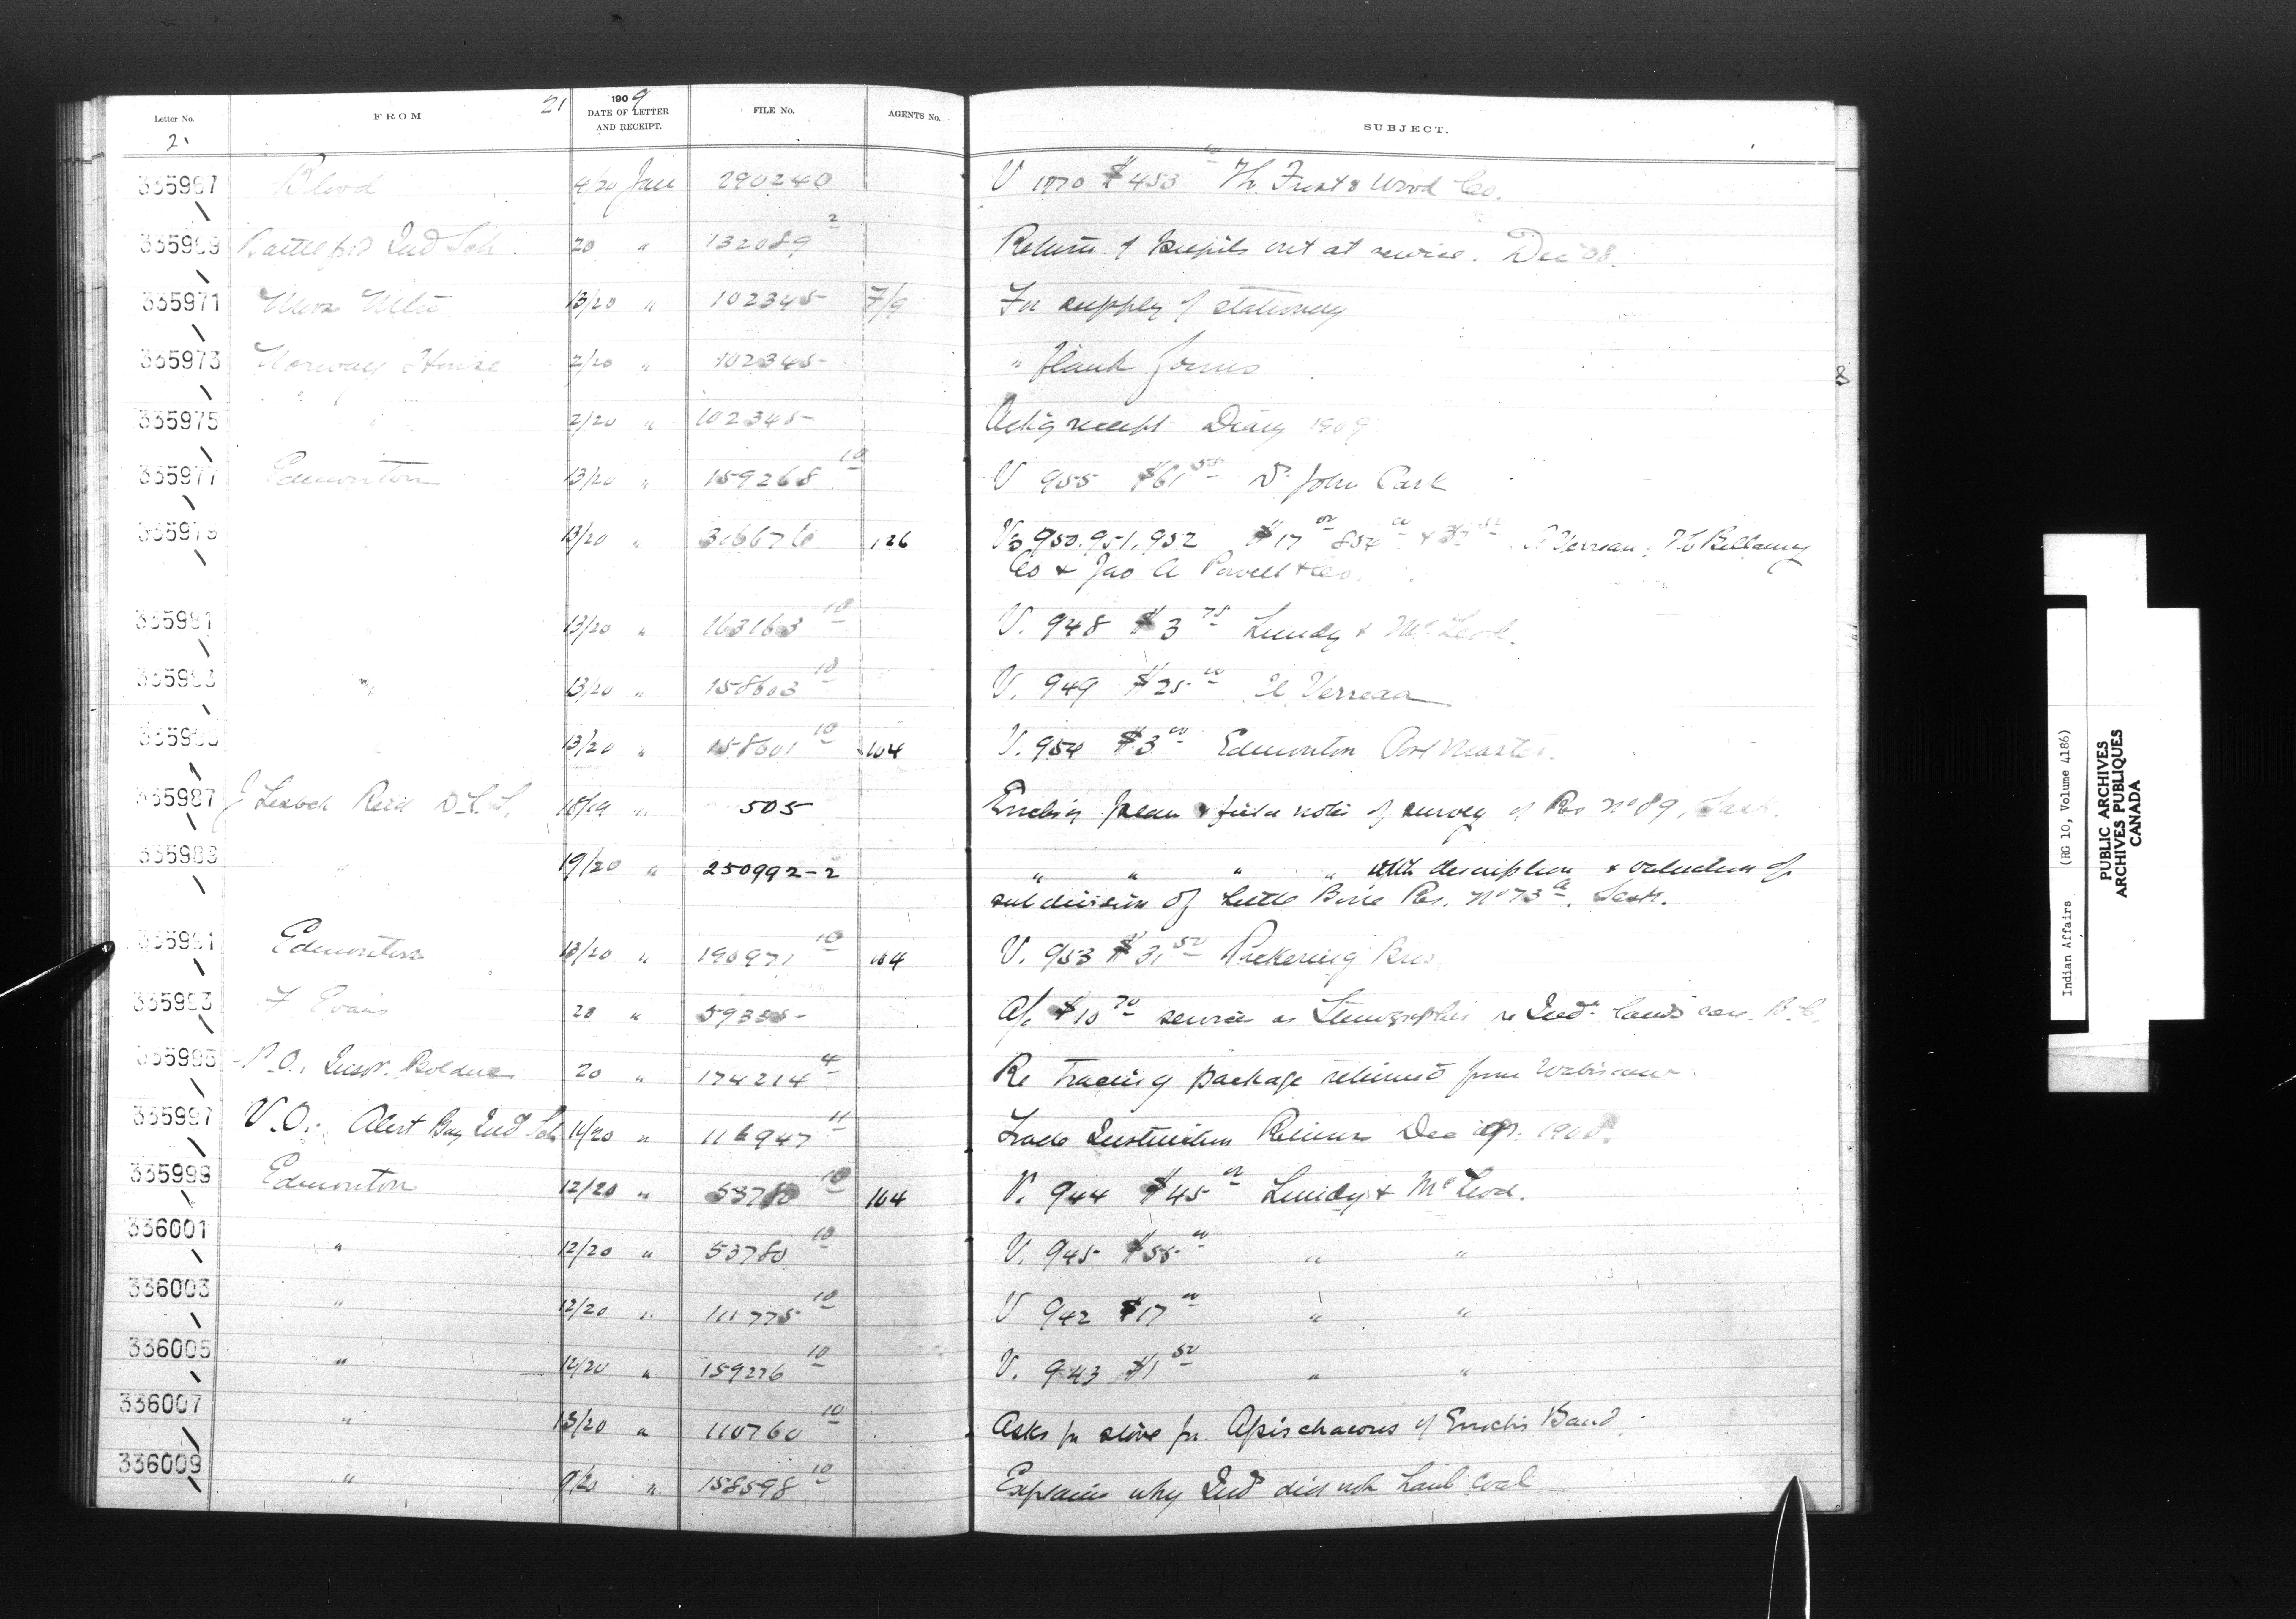 Letter No. FROM 21 1909 DATE OF LETTER AND RECEIPT. FILE No. AGENTS No. SUBJECT.
2.
335967 Blood 4/20 Jan 290240 V 1770 $453 00 Th. Frost & Wood Co.
335969 Battleford Ind Sch. 20 " 132089 2 Return of pupils out at service. Dec 08.
335971 13/20 " 102345 7/9 For supply of stationery
335973 Norway House 2/20 " 102345 " blank forms
335975 " 2/20 " 102345 Ack'g receipt Diary 1909
335977 Edmonton 13/20 " 159268 10 V 955 $61 50 D. John Park
335979 " 13/20 " 316676 126 Vs 950.951.952 $17 00 854 00 & 32 50 A Verreau, Th Bellamy
Co & Jno A Powell & Co.
335981 " 13/20 " 163163 10 V. 948 $3 75 Lundy & McLeod.
335983 " 13/20 " 158603 10 V. 949 $25 00 A Verreau
335985 " 13/20 " 158601 10 104 V. 954 $3 00 Edmonton Post Master.
335987 J Lestock Reid D.L.S. 18/19 " 505 Encls'g plan & field notes of survey of Res No 89, Sask.
335989 " 19/20 " 250992-2 " " " " with description & valuation of
subdivision of Little Bone Res. No 73 a. Sask.
335991 Edmonton 13/20 " 190971 10 104 V. 953 $31 50 Pickering Bros
335993 F Evans 20 " 59335- A/c $10 70 services as Stenographer re Ind. lands case. B.C.
335995 P.O. Insp. Bolduc 20 " 174214 4 Re Tracing package returned from
335997 V.O. Alert Bay Ind Sch 14/20 " 116947 11 Trade Instruction Returns Dec qr. 1908.
335999 Edmonton 12/20 " 53780 10 104 V. 944 $45 00 Lundy & McLeod.
336001 " 12/20 " 53780 10 V. 945 $55 00 " "
336003 " 12/20 " 111775 10 V 942 $17 00 " "
336005 " 12/20 " 159276 10 V. 943 $1 50 " "
336007 " 13/20 " 110760 10 Asks for stove for Apischacoos of Enochs Band.
336009 " 9/20 " 158598 10 Explains why Ind did not haul coal
8
Indian Affairs (RG 10, Volume 4186)
PUBLIC ARCHIVES
ARCHIVES PUBLIQUES
CANADA